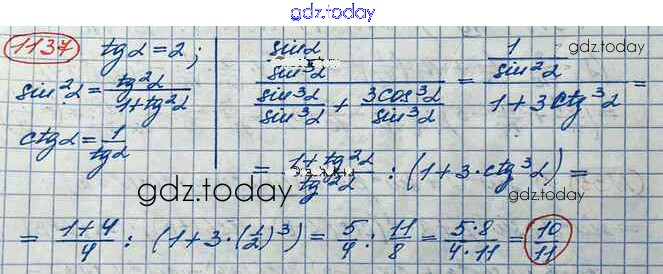 gdz.today
1137 tgα = 2;
sin²α = tg²α / 1+tg²α
ctgα = 1 / tgα
(sinα / sin³α) / (sin³α / sin³α + 3cos³α / sin³α) = (1 / sin²α) / (1+3ctg³α) =
gdz.today
= 1+tg²α / tg²α : (1+3·ctg³α) =
gdz.today
= 1+4 / 4 : (1+3·(1/2)³) = 5/4 : 11/8 = 5·8 / 4·11 = 10/11